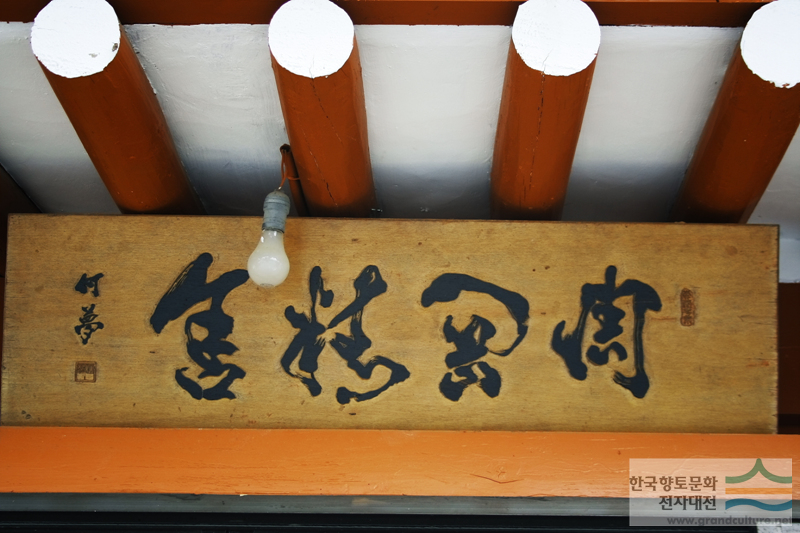 周 精舍
何夢
한국향토문화
전자대전
www.grandculture.net